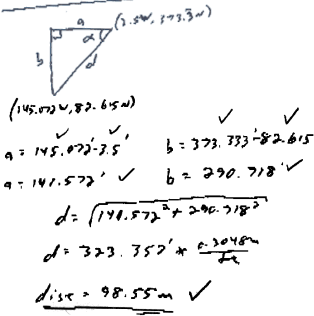 a
(3.5W, 373.3̄N)
α
b
d
(145.072W, 82.615N)
a = 145.072' - 3.5'
b = 373.333' - 82.615
a = 141.572'
b = 290.718'
d = √141.572² + 290.718²
d = 323.352' * 0.3048m/ft
dist = 98.55m